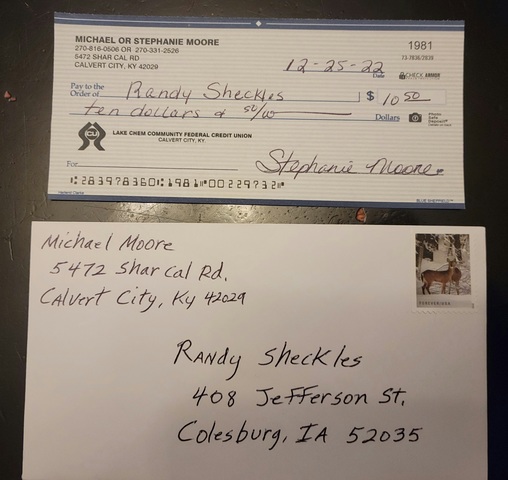 MICHAEL OR STEPHANIE MOORE
270-816-0506 OR 270-331-2526
5472 SHAR CAL RD
CALVERT CITY, KY 42029
1981
73-7836/2839
12-25-22
Date
CHECK ARMOR
Pay to the
Order of
Randy Sheckles
$ 10 50
ten dollars & 50/100
Dollars
CU
LAKE CHEM COMMUNITY FEDERAL CREDIT UNION
CALVERT CITY, KY
For
Stephanie Moore
⑆283978360⑆1981⑈00229732⑈
Harland Clarke
BLUE SHEFFIELD™
Michael Moore
5472 Shar Cal Rd.
Calvert City, Ky 42029
FOREVER/USA
Randy Sheckles
408 Jefferson St.
Colesburg, IA 52035